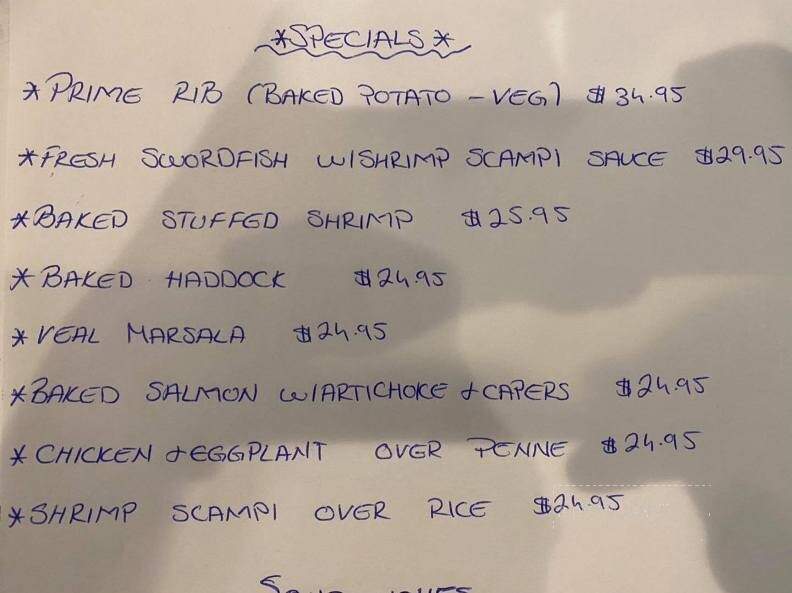 *SPECIALS*
*PRIME RIB (BAKED POTATO - VEG) $34.95
*FRESH SWORDFISH W/SHRIMP SCAMPI SAUCE $29.95
*BAKED STUFFED SHRIMP $25.95
*BAKED HADDOCK $24.95
*VEAL MARSALA $24.95
*BAKED SALMON W/ARTICHOKE & CAPERS $24.95
*CHICKEN & EGGPLANT OVER PENNE $24.95
*SHRIMP SCAMPI OVER RICE $24.95